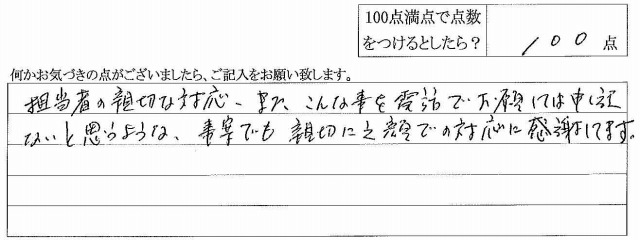 100点満点で点数
をつけるとしたら？
100点
何かお気づきの点がございましたら、ご記入をお願い致します。
担当者の親切な対応、また、こんな事を電話でお願いしては申し訳
ないと思うような、事案でも親切に笑顔での対応に感謝してます。